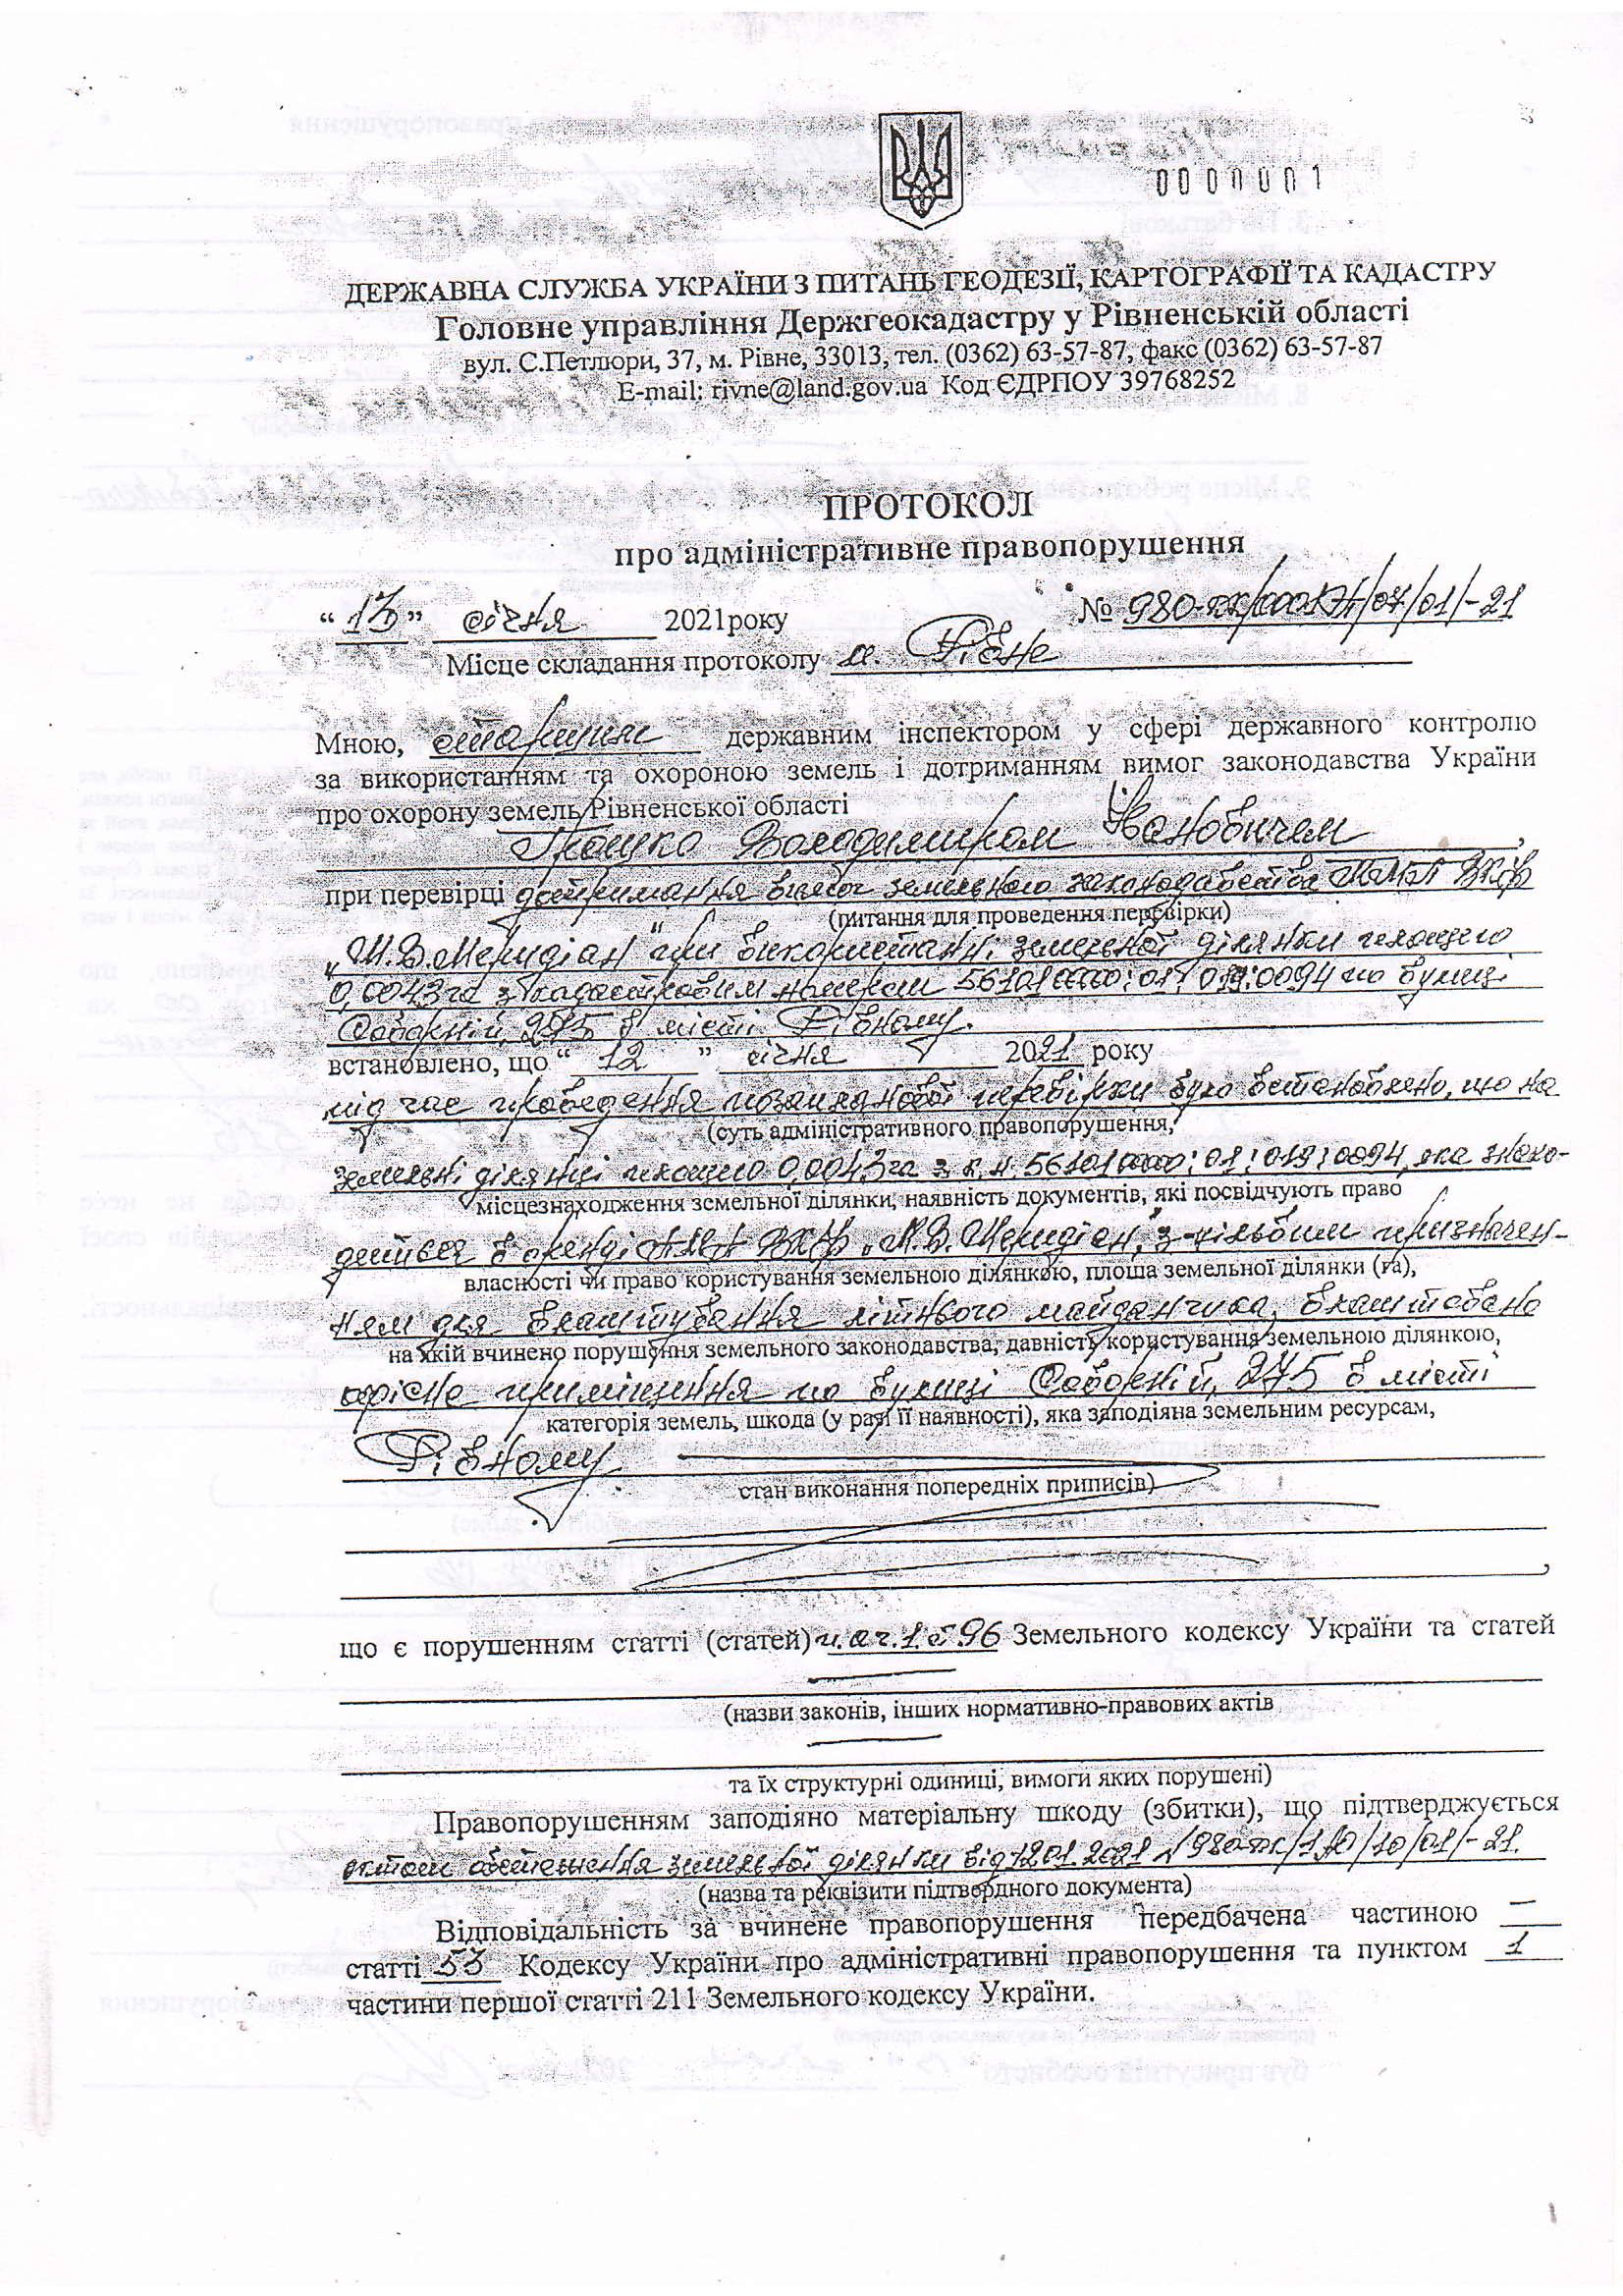 0000001
ДЕРЖАВНА СЛУЖБА УКРАЇНИ З ПИТАНЬ ГЕОДЕЗІЇ, КАРТОГРАФІЇ ТА КАДАСТРУ
Головне управління Держгеокадастру у Рівненській області
вул. С.Петлюри, 37, м. Рівне, 33013, тел. (0362) 63-57-87, факс (0362) 63-57-87
E-mail: rivne@land.gov.ua Код ЄДРПОУ 39768252
ПРОТОКОЛ
про адміністративне правопорушення
“ 13 ” січня 2021року № 980-ДК/0001П/07/01/-21
Місце складання протоколу м. Рівне
Мною, старшим державним інспектором у сфері державного контролю
за використанням та охороною земель і дотриманням вимог законодавства України
про охорону земель Рівненської області
Володимиром Івановичем,
при перевірці дотримання вимог земельного законодавства
(питання для проведення перевірки)
„М.В.Меридіан“ при використанні земельної ділянки площею
0,0043 га з кадастровим номером 5610100000:01:019:0094 по вулиці
Соборній, 275 в місті Рівному.
встановлено, що “ 12 ” січня 2021 року
під час проведення позапланової перевірки було встановлено, що на
(суть адміністративного правопорушення,
земельні ділянці площею 0,0043 га з к.н. 5610100000:01:019:0094, яка знахо-
місцезнаходження земельної ділянки, наявність документів, які посвідчують право
диться в оренді „М.В.Меридіан“, з цільовим призначен-
власності чи право користування земельною ділянкою, площа земельної ділянки (га),
ням для влаштування літнього майданчика, влаштовано
на якій вчинено порушення земельного законодавства, давність користування земельною ділянкою,
офісне приміщення по вулиці Соборній, 275 в місті
категорія земель, шкода (у разі її наявності), яка заподіяна земельним ресурсам,
Рівному.
стан виконання попередніх приписів)
,
що є порушенням статті (статей) п. а ч.1 с 96 Земельного кодексу України та статей
—
(назви законів, інших нормативно-правових актів
—
та їх структурні одиниці, вимоги яких порушені)
Правопорушенням заподіяно матеріальну шкоду (збитки), що підтверджується
актом обстеження земельної ділянки від 12.01.2021 №
(назва та реквізити підтвердного документа)
Відповідальність за вчинене правопорушення передбачена частиною —
статті 53 Кодексу України про адміністративні правопорушення та пунктом 1
частини першої статті 211 Земельного кодексу України.